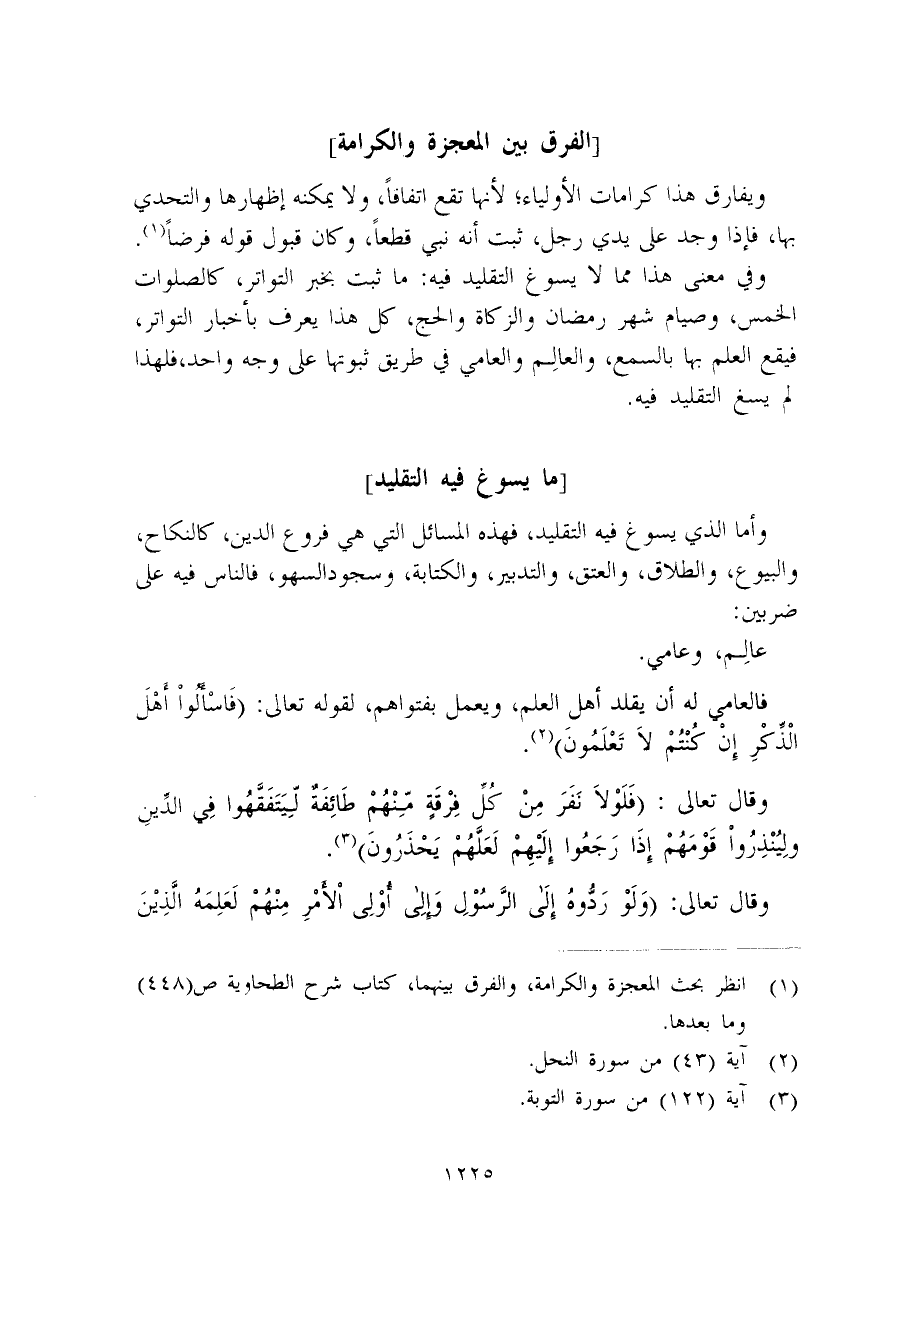 [الفرق بين المعجزة والكرامة]
ويفارق هذا كرامات الأولياء؛ لأنها تقع اتفاقاً، ولا يمكنه إظهارها والتحدي
بها، فإذا وجد على يدي رجل، ثبت أنه نبي قطعاً، وكان قبول قوله فرضاً(١).
وفي معنى هذا مما لا يسوغ التقليد فيه: ما ثبت بخبر التواتر، كالصلوات
الخمس، وصيام شهر رمضان والزكاة والحج، كل هذا يعرف بأخبار التواتر،
فيقع العلم بها بالسمع، والعالِم والعامي في طريق ثبوتها على وجه واحد،فلهذا
لم يسغ التقليد فيه.
[ما يسوغ فيه التقليد]
وأما الذي يسوغ فيه التقليد، فهذه المسائل التي هي فروع الدين، كالنكاح،
والبيوع، والطلاق، والعتق، والتدبير، والكتابة، وسجودالسهو، فالناس فيه على
ضربين:
عالِم، وعامي.
فالعامي له أن يقلد أهل العلم، ويعمل بفتواهم، لقوله تعالى: (فَاسْأَلُواْ أَهْلَ
الْذِّكْرِ إِنْ كُنْتُمْ لاَ تَعْلَمُونَ)(٢).
وقال تعالى : (فَلَوْلاَ نَفَرَ مِنْ كُلِّ فِرْقَةٍ مِّنْهُمْ طَائِفَةٌ لِّيَتَفَقَّهُوا فِي الدِّينِ
ولِيُنْذِرُواْ قَوْمَهُمْ إِذَا رَجَعُوا إِلَيْهِمْ لَعَلَّهُمْ يَحْذَرُونَ)(٣).
وقال تعالى: (وَلَوْ رَدُّوهُ إِلَى الرَّسُوْلِ وَإِلىٰ أُوْلِى الْأَمْرِ مِنْهُمْ لَعَلِمَهُ الَّذِيْنَ
(١) انظر بحث المعجزة والكرامة، والفرق بينهما، كتاب شرح الطحاوية ص(٤٤٨)
وما بعدها.
(٢) آية (٤٣) من سورة النحل.
(٣) آية (١٢٢) من سورة التوبة.
١٢٢٥